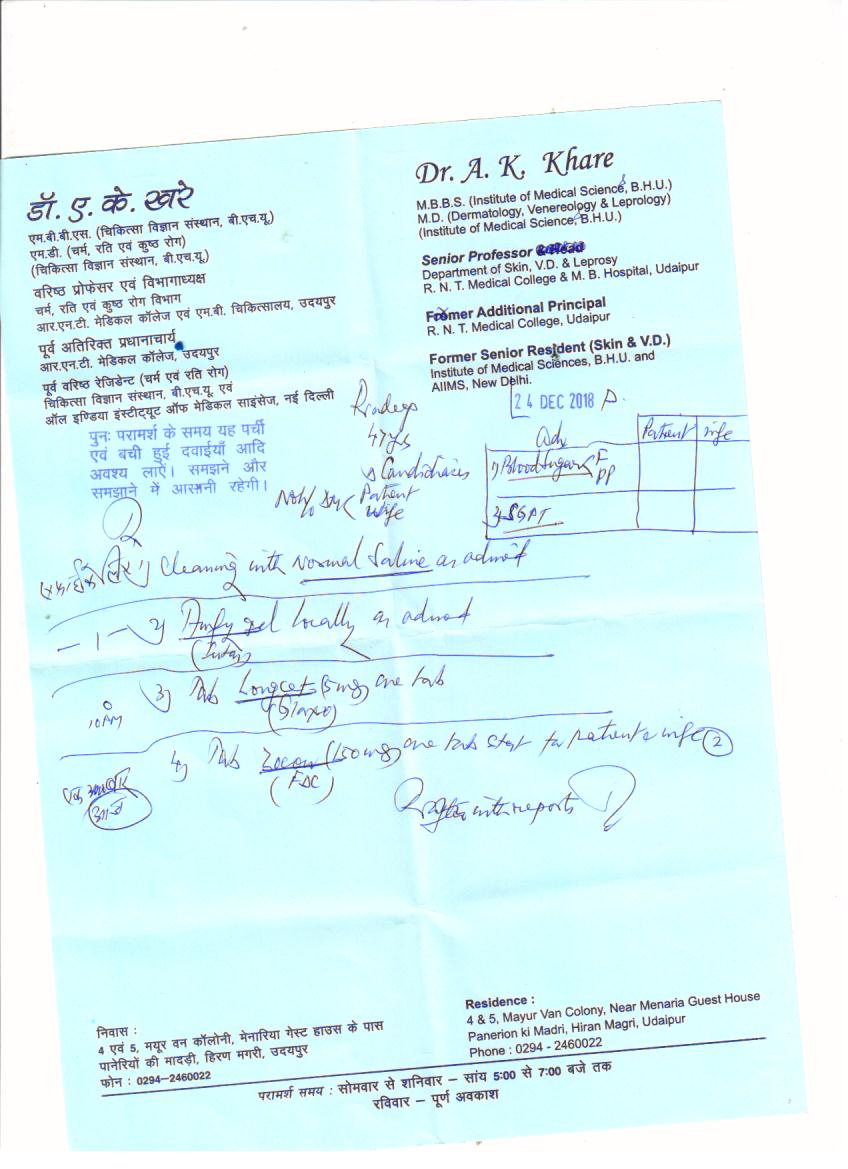 डॉ. ए. के. खरे
एम.बी.बी.एस. (चिकित्सा विज्ञान संस्थान, बी.एच.यू.)
एम.डी. (चर्म, रति एवं कुष्ठ रोग)
(चिकित्सा विज्ञान संस्थान, बी.एच.यू.)
वरिष्ठ प्रोफेसर एवं विभागाध्यक्ष
चर्म, रति एवं कुष्ठ रोग विभाग
आर.एन.टी. मेडिकल कॉलेज एवं एम.बी. चिकित्सालय, उदयपुर
पूर्व अतिरिक्त प्रधानाचार्य
आर.एन.टी. मेडिकल कॉलेज, उदयपुर
पूर्व वरिष्ठ रेजिडेन्ट (चर्म एवं रति रोग)
चिकित्सा विज्ञान संस्थान, बी.एच.यू. एवं
ऑल इण्डिया इंस्टीट्यूट ऑफ मेडिकल साइंसेज, नई दिल्ली
पुनः परामर्श के समय यह पर्ची
एवं बची हुई दवाईयाँ आदि
अवश्य लाऐं। समझने और
समझाने में आसानी रहेगी।
Dr. A. K. Khare
M.B.B.S. (Institute of Medical Science, B.H.U.)
M.D. (Dermatology, Venereology & Leprology)
(Institute of Medical Science, B.H.U.)
Senior Professor & Head
Department of Skin, V.D. & Leprosy
R. N. T. Medical College & M. B. Hospital, Udaipur
Former Additional Principal
R. N. T. Medical College, Udaipur
Former Senior Resident (Skin & V.D.)
Institute of Medical Sciences, B.H.U. and
AIIMS, New Delhi.
24 DEC 2018
47 yrs
Candidiasis
Patient
wife
Adv
Patient wife
1) Blood Sugar F
PP
2) SGPT
1) Cleaning with Normal Saline as advised
2) gel locally as advised
10 AM 3) Tab Longcet (5mg) one tab
(Glaxo)
4) Tab Zocon (150mg) one tab stat for patient & wife 2
(FDC)
with reports
निवास :
4 एवं 5, मयूर वन कॉलोनी, मेनारिया गेस्ट हाउस के पास
पानेरियों की मादड़ी, हिरण मगरी, उदयपुर
फोन : 0294-2460022
Residence :
4 & 5, Mayur Van Colony, Near Menaria Guest House
Panerion ki Madri, Hiran Magri, Udaipur
Phone : 0294 - 2460022
परामर्श समय : सोमवार से शनिवार – सांय 5:00 से 7:00 बजे तक
रविवार – पूर्ण अवकाश